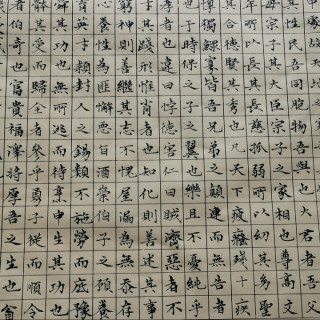 性民吾同胞物吾與也大君者吾父
母宗子其大臣宗子之家相也尊高
年所以長其長慈孤弱所以幼其幼聖
其合德賢其秀也凡天下疲癃殘疾
獨鰥寡皆吾兄弟之顛連而無告者
也于時保之子之翼也樂且不憂純乎
孝者也違曰悖德害仁曰賊濟惡者不
才其踐形惟肖者也知化則善述其事
窮神則善繼其志不愧屋漏為無忝存
心養性為匪懈惡旨酒崇伯子之顧養
育英才封人之錫類不施勞而底豫
舜其功也無所逃而待烹申生其恭也
體其受而歸全者參乎勇於從而順令
者伯奇也富貴福澤將厚吾之生也